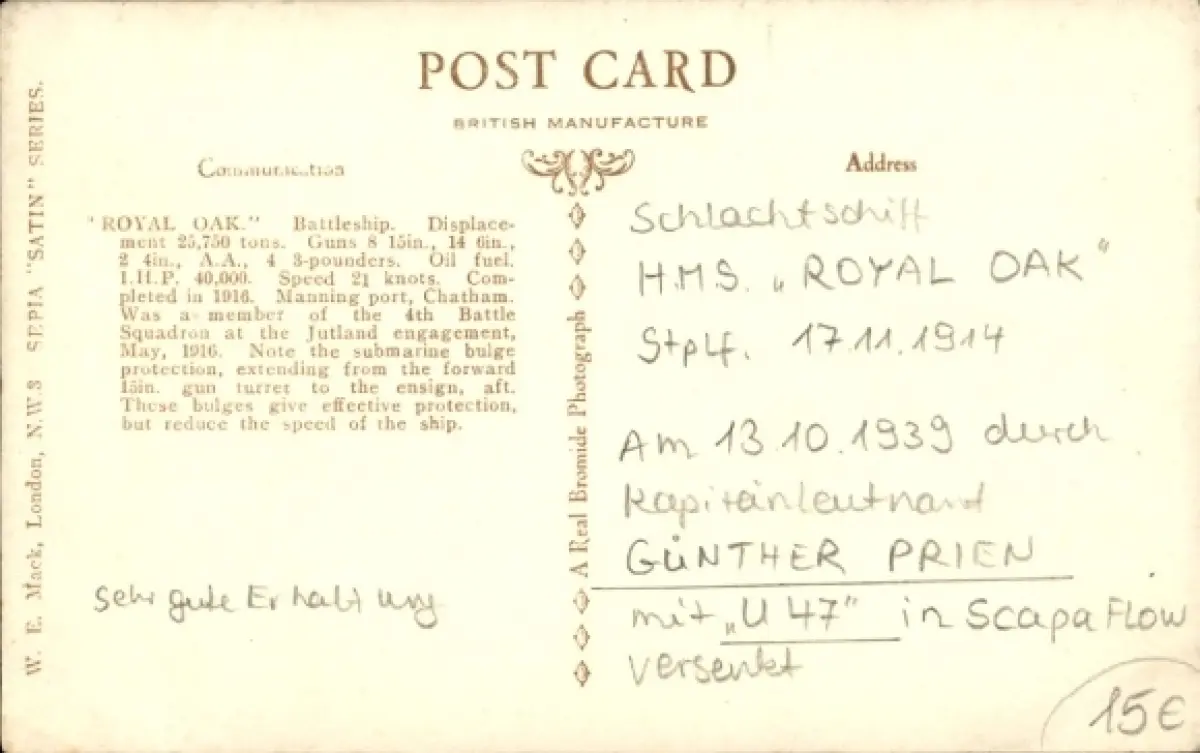 POST CARD
BRITISH MANUFACTURE
Communication
Address
"ROYAL OAK." Battleship. Displace-
ment 25,750 tons. Guns 8 15in., 14 6in.,
2 4in., A.A., 4 3-pounders. Oil fuel.
I.H.P. 40,000. Speed 21 knots. Com-
pleted in 1916. Manning port, Chatham.
Was a member of the 4th Battle
Squadron at the Jutland engagement,
May, 1916. Note the submarine bulge
protection, extending from the forward
15in. gun turret to the ensign, aft.
These bulges give effective protection,
but reduce the speed of the ship.
sehr gute Erhaltung
W. E. Mack, London, N.W.3 SEPIA "SATIN" SERIES.
A Real Bromide Photograph
Schlachtschiff
H.M.S. „ROYAL OAK"
Stplf. 17.11.1914
Am 13.10.1939 durch
Kapitänleutnant
GÜNTHER PRIEN
mit „U 47" in Scapa Flow
versenkt
15€